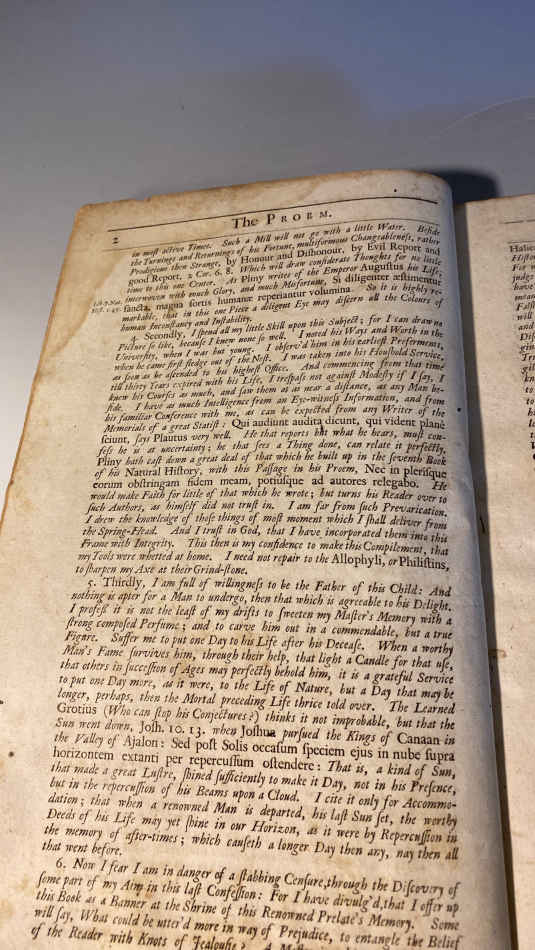 The PROEM.
2
in most active Times. Such a Mill will not go with a little Water. Beside
the Turnings and Returnings of his Fortune, multiformous Changeableness, rather
Prodigious then Strange, by Honour and Dishonour, by Evil Report and
good Report, 2 Cor. 6. 8. Which will draw considerate Thoughts for no little
time to this one Center. As Pliny writes of the Emperor Augustus his Life;
interwoven with much Glory, and much Misfortune, Si diligenter æstimentur
Lib.7.Nat.
Hist. c.45.
cuncta, magna sortis humanæ reperiantur volumina. So it is highly re-
markable, that in this one Piece a diligent Eye may discern all the Colours of
human Inconstancy and Instability.
4. Secondly, I spend all my little Skill upon this Subject; for I can draw no
Picture so like, because I knew none so well. I noted his Ways and Worth in the
University, when I was but young. I observ'd him in his earliest Preferments,
when he came first fledge out of the Nest. I was taken into his Houshold Service,
as soon as he ascended to his highest Office. And commencing from that time
till thirty Years expired with his Life, I trespass not against Modesty if I say, I
knew his Courses as much, and saw them at as near a distance, as any Man be-
side. I have as much Intelligence from an Eye-witness Information, and from
his familiar Conference with me, as can be expected from any Writer of the
Memorials of a great Statist: Qui audiunt audita dicunt, qui vident planè
sciunt, says Plautus very well. He that reports but what he hears, must con-
fess he is at uncertainty; he that sees a Thing done, can relate it perfectly.
Pliny hath cast down a great deal of that which he built up in the seventh Book
of his Natural History, with this Passage in his Proem, Nec in plerisque
eorum obstringam fidem meam, potiusque ad autores relegabo. He
would make Faith for little of that which he wrote; but turns his Reader over to
such Authors, as himself did not trust in. I am far from such Prevarication.
I drew the knowledge of those things of most moment which I shall deliver from
the Spring-Head. And I trust in God, that I have incorporated them into this
Frame with Integrity. This then is my confidence to make this Compilement, that
my Tools were whetted at home. I need not repair to the Allophyli, or Philistins,
to sharpen my Axe at their Grind-stone.
5. Thirdly, I am full of willingness to be the Father of this Child: And
nothing is apter for a Man to undergo, then that which is agreeable to his Delight.
I profess it is not the least of my drifts to sweeten my Master's Memory with a
strong composed Perfume; and to carve him out in a commendable, but a true
Figure. Suffer me to put one Day to his Life after his Decease. When a worthy
Man's Fame survives him, through their help, that light a Candle for that use,
that others in succession of Ages may perfectly behold him, it is a grateful Service
to put one Day more, as it were, to the Life of Nature, but a Day that may be
longer, perhaps, then the Mortal preceding Life thrice told over. The Learned
Grotius (Who can stop his Conjectures?) thinks it not improbable, but that the
Sun went down, Josh. 10. 13. when Joshua pursued the Kings of Canaan in
the Valley of Ajalon: Sed post Solis occasum speciem ejus in nube supra
horizontem extanti per repercussum ostendere: That is, a kind of Sun,
that made a great Lustre, shined sufficiently to make it Day, not in his Presence,
but in the repercussion of his Beams upon a Cloud. I cite it only for Accommo-
dation; that when a renowned Man is departed, his last Sun set, the worthy
Deeds of his Life may yet shine in our Horizon, as it were by Repercussion in
the memory of after-times; which causeth a longer Day then any, nay then all
that went before.
6. Now I fear I am in danger of a stabbing Censure, through the Discovery of
some part of my Aim in this last Confession: For I have divulg'd, that I offer up
this Book as a Banner at the Shrine of this Renowned Prelate's Memory. Some
will say, What could be utter'd more in way of Prejudice, to entangle the Belief
of the Reader with Knots of Jealousie?